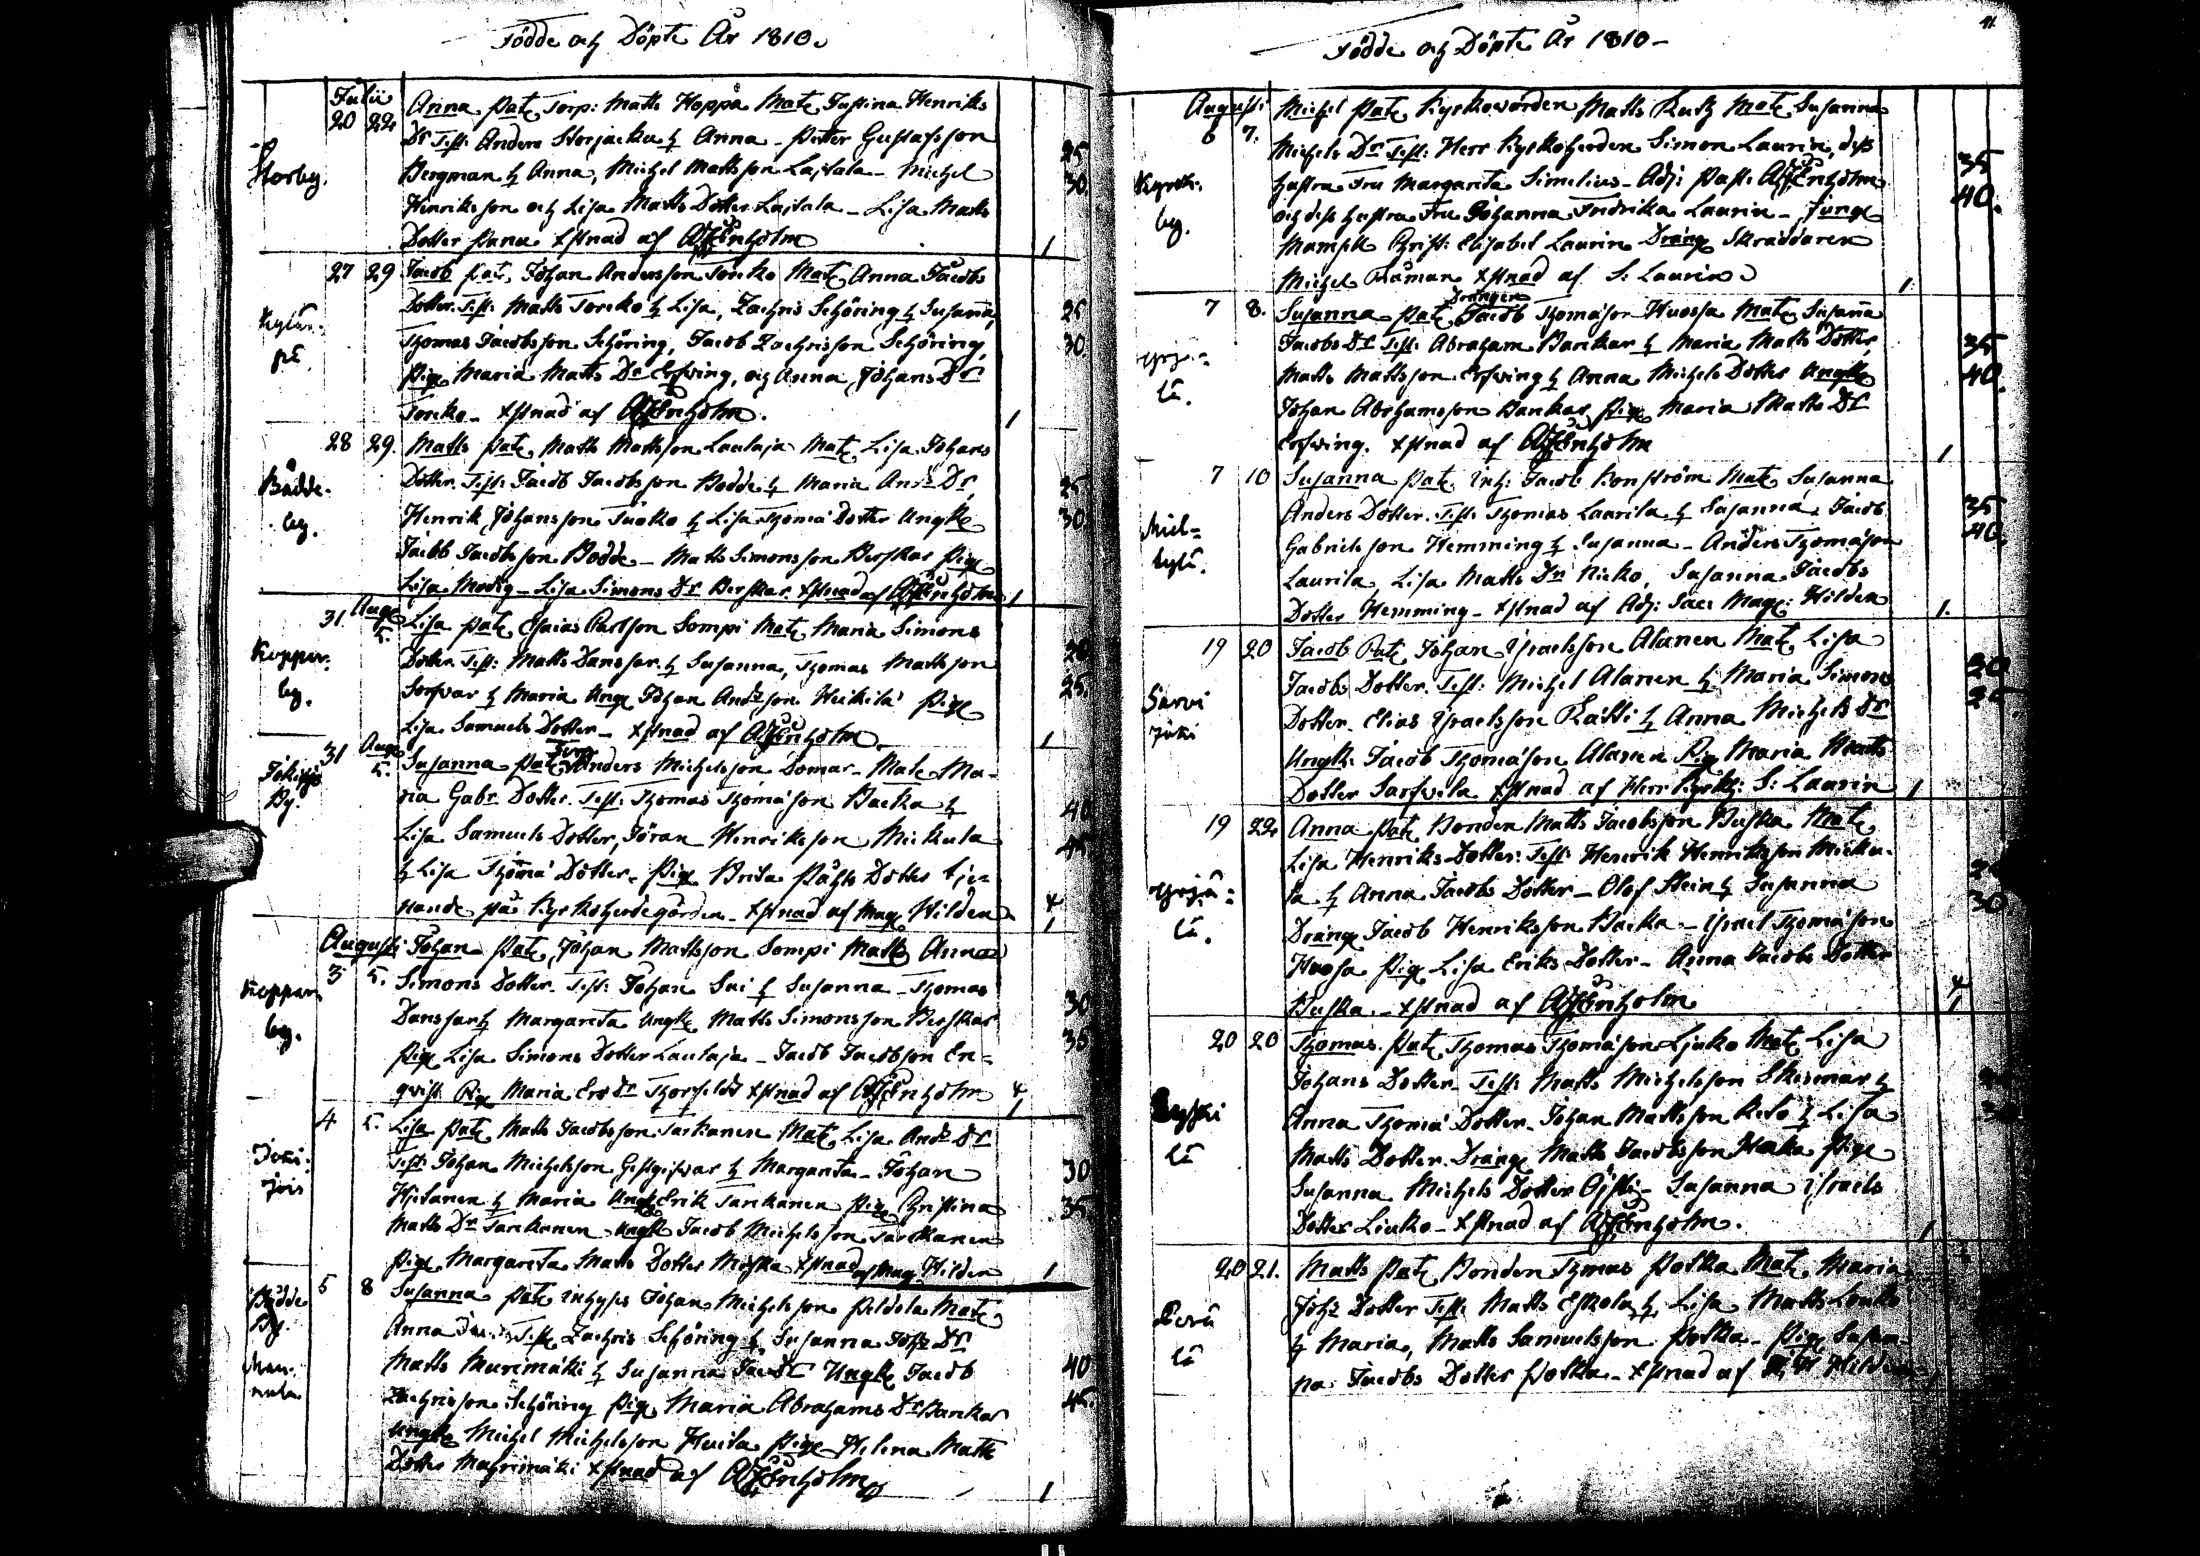 Födde och Döpte År 1810.
Julii
20 22 Anna Pat. Torp: Matts Hoppa Mat. Justina Henriks
Storby.
Dr Test: Anders Storjacku & Anna - Petter Gustafsson
25
Bergman & Anna, Michel Mattsson Lassala - Michel
30.
Henriksson och Lisa Matts Dotter Lassala - Lisa Matts
Dotter Panu Xstnad af Enholm
1
27 29 Jacob Pat. Johan Andersson Torcko Mat. Anna Jacobs
Dotter. Test: Matts Torcko & Lisa, Zachris Schöring & Susanna,
25
Thomas Jacobsson Schöring, Jacob Zachrisson Schöring,
30.
Pig. Maria Matts Dr Erfwing, och Anna Johans Dr
Torcko - Xstnad af Enholm.
1
28 29. Matts Pat. Matts Mattsson Laulaja Mat. Lisa Johans
Bådde-
by.
Dotter. Test: Jacob Jacobsson Bodde & Maria And: Dr,
25
Henrik Johansson Tuoko & Lisa Thoma Dotter Ungk.
30.
Jacob Jacobsson Bodde - Matts Simonsson Berskar Pig.
Lisa Modig - Lisa Simons Dr Berskar. Xstnad af Enholm
1
31. Aug. 5. Lisa Pat. Esaias Carlsson Sompi Mat. Maria Simons
Koppar-
by.
Dotter. Test: Matts Dansfar & Susanna, Thomas Mattsson
20
Sorfvar & Maria Ung. Johan Andsson Heickila Pig.
25.
Lisa Samuels Dotter - Xstnad af Enholm
1
31 Aug. 5. Susanna Pat. Torp. Anders Michelsson Domar - Mat. Ma-
By.
ria Gabr. Dotter. Test: Thomas Thomasson Backa &
40
Lisa Samuels Dotter, Jöran Henriksson Mickula
45.
& Lisa Thoma Dotter, Pig. Brita Påhls Dotter tje-
nande på Kyrkoherdegården - Xstnad af Mag. Hilden
1
Augusti
3 5. Johan Pat. Johan Mattsson Sompi Matts Anna
Koppar
by.
Simons Dotter. Test: Johan Sui & Susanna - Thomas
30
Dansfar & Margareta Ungk. Matts Simonsson Berskar
35
Pig. Lisa Simons Dotter Laulaja - Jacob Jacobsson En-
qvist Pig. Maria Ers Dr Thorsfeldt Xstnad af Enholm
1
4 5. Lisa Pat. Matts Jacobsson Tarkanen Mat. Lisa And: Dr
Test: Johan Michelsson Gestgifvar & Margareta - Johan
30
Hietanen & Maria Ungk. Erik Tarkanen Pig. Christina
35.
Matts Dr Tarkanen Ungk. Jacob Michelsson Tarkanen
Pig. Margareta Matts Dotter Miska Xstnad af Mag. Hilden
1
5 8 Susanna Pat. inhyses Johan Michelsson Peldola Mat.
Bådde
By.
Anna Test. Zachris Schöring & Susanna Joh: Dr
Matts Murimäki & Susanna Jacob: Dr Ungk. Jacob
40
Zachrisson Schöring Pig. Maria Abrahams Dr Bankar
45.
Ungk. Michel Michelsson Huila Pig. Helena Matts
Dotter Xstnad af Enholm
1
Födde och Döpte År 1810 -
41.
Augusti
6 7. Michel Pat. Kyrkovärden Matts Mat. Susanna
Kyrck-
by.
Michels Dr Test: Herr Kyrkoherden Simon Laurin, dess
35
hustru Fru Margareta Simelius - Adj: Past: Enholm
40.
och dess hustru Fru Johanna Fredrika Laurin - Jung.
Mamsell Christ: Elisabet Laurin Dräng. Skräddaren
Michel Råman Xstnad af S: Laurin
1.
7 8. Susanna Pat. Drängen Jacob Thomasson Huosa Mat. Susanna
Jacobs Dr Test: Abraham Bankar & Maria Matts Dotter,
35
Matts Mattsson Erfwing & Anna Michels Dotter Ungk.
40.
Johan Abrahamsson Bankar, Pig. Maria Matts Dr
Erfwing. Xstnad af Enholm
1
7 10 Susanna Pat. Inh: Jacob Konström Mat. Susanna
Anders Dotter. Test: Thomas Laurila & Susanna, Jacob
35
Gabrielsson Hemming & Susanna - Anders Thomasson
40.
Laurila Lisa Matts Dr Nicko, Susanna Jacobs
Dotter Hemming - Xstnad af Adj: Sac: Mag: Hilden
1.
19 20 Jacob Pat. Johan Israelsson Alanen Mat. Lisa
Sarvi
joki
Jacobs Dotter. Test: Michel Alanen & Maria Simons
20
Dotter. Elias Israelsson Rätti & Anna Michels Dr
25
Ungk: Jacob Thomasson Alanen Pig. Maria Matts
Dotter Sarfwila Xstnad af Herr Kyrkh: S: Laurin
1
19 22. Anna Pat. Bonden Matts Jacobsson Buska Mat.
Lisa Henriks Dotter: Test: Henrik Henriksson Micku-
la & Anna Jacobs Dotter - Olof Stein & Susanna
30
Dräng. Jacob Henriksson Backa - Israel Thomasson
Huosa Pig. Lisa Eriks Dotter - Anna Jacobs Dotter
Buska. - Xstnad af Enholm
1
20 20 Thomas. Pat. Thomas Thomasson Liuko Mat. Lisa
Johans Dotter. Test: Matts Michelsson &
Anna Thoma Dotter. Johan Mattsson & Lisa
Matts Dotter. Dräng Matts Jacobsson Pig.
Susanna Michels Dotter - Susanna Israels
Dotter Liuko - Xstnad af Enholm.
1
20 21. Matts Pat. Bonden Thomas Potka Mat. Maria
Joh: Dotter Test: Matts Eskola & Lisa Matts
& Maria, Matts Samuelsson Potka - Pig. Susan-
na Jacobs Dotter Potka - Xstnad af Hilden